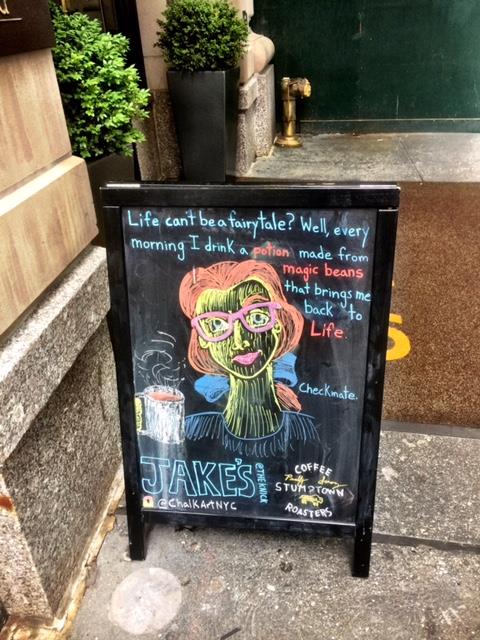 Life can't be a fairytale? Well, every
morning I drink a potion made from
magic beans
that brings me
back to
Life.
Checkmate.
JAKE'S @THE KNICK
@ChalkArtNYC
COFFEE
STUMPTOWN
ROASTERS